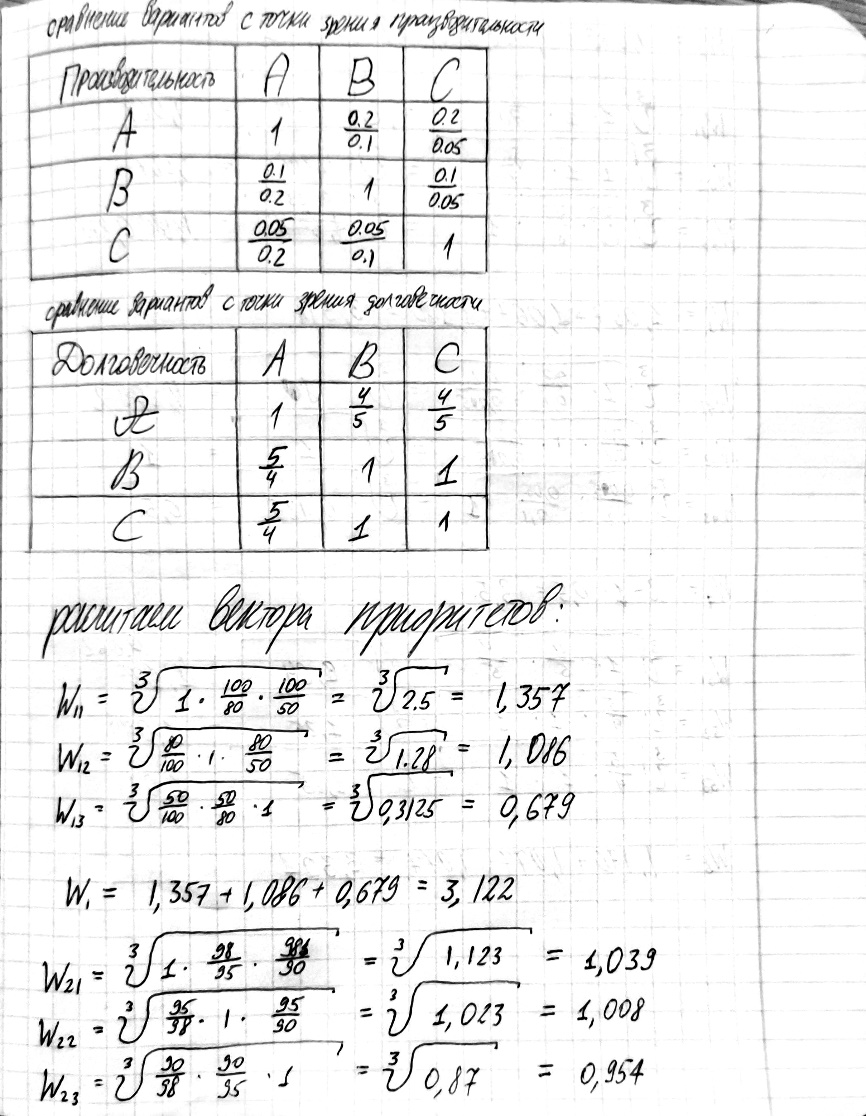 сравнение вариантов с точки зрения производительности
Производительность A B C
A 1 0.2/0.1 0.2/0.05
B 0.1/0.2 1 0.1/0.05
C 0.05/0.2 0.05/0.1 1
сравнение вариантов с точки зрения долговечности
Долговечность A B C
A 1 4/5 4/5
B 5/4 1 1
C 5/4 1 1
расчитаем вектора приоритетов:
W₁₁ = ∛(1 · 100/80 · 100/50) = ∛2.5 = 1,357
W₁₂ = ∛(80/100 · 1 · 80/50) = ∛1.28 = 1,086
W₁₃ = ∛(50/100 · 50/80 · 1) = ∛0,3125 = 0,679
W₁ = 1,357 + 1,086 + 0,679 = 3,122
W₂₁ = ∛(1 · 98/95 · 98/90) = ∛1,123 = 1,039
W₂₂ = ∛(95/98 · 1 · 95/90) = ∛1,023 = 1,008
W₂₃ = ∛(90/98 · 90/95 · 1) = ∛0,87 = 0,954